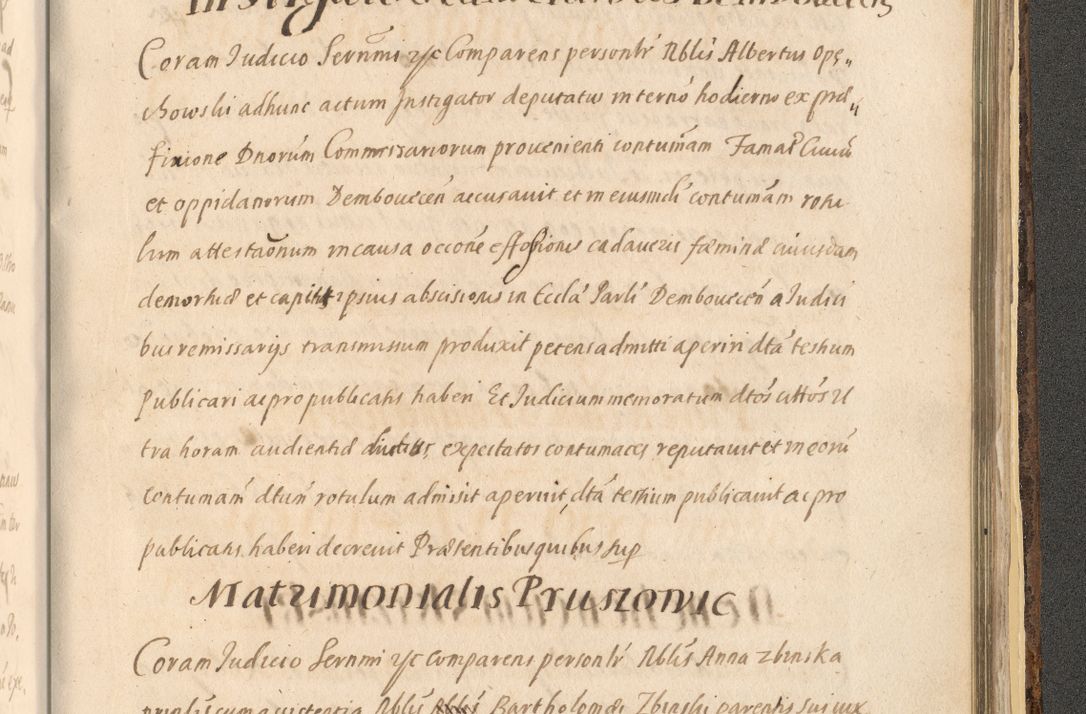 Coram Iudicio Sernmi &c Comparens personlr Nblis Albertus Opę„
chowski adhunc actum Instigator deputatus in termó hodierno ex præ„
fixione Dnorúm Commissariorum prouenienti contumam Famat Ciuiú
et oppidanorum Dembouecen accusauit et in eiusmdi contumam rotu
lum attestaōnum in causa occone effossionis cadaueris fæminæ cuiusdam
demortuæ et capitis ipsius abscisionis in Eccla Parli Dembouecen a Iudici
bus remissarijs transmissum produxit petens admitti aperiri dta testium
Publicari ac pro publicatis haberi Et Iudicium memoratum dtos cittos Ul
tra horam audientiæ expectatos contumaces reputauit et in eorú
Contumam dtum rotulum admisit aperuit, dta testium publicauit ac pro
publicatis haberi decreuit Præsentibus quibus sup
Matrimonialis Pruszonic
Coram Iudicio Sernmi &c Comparens personlr Nblis Anna Zbinska
Nblis Bartholomæi Zbinski parentis sui